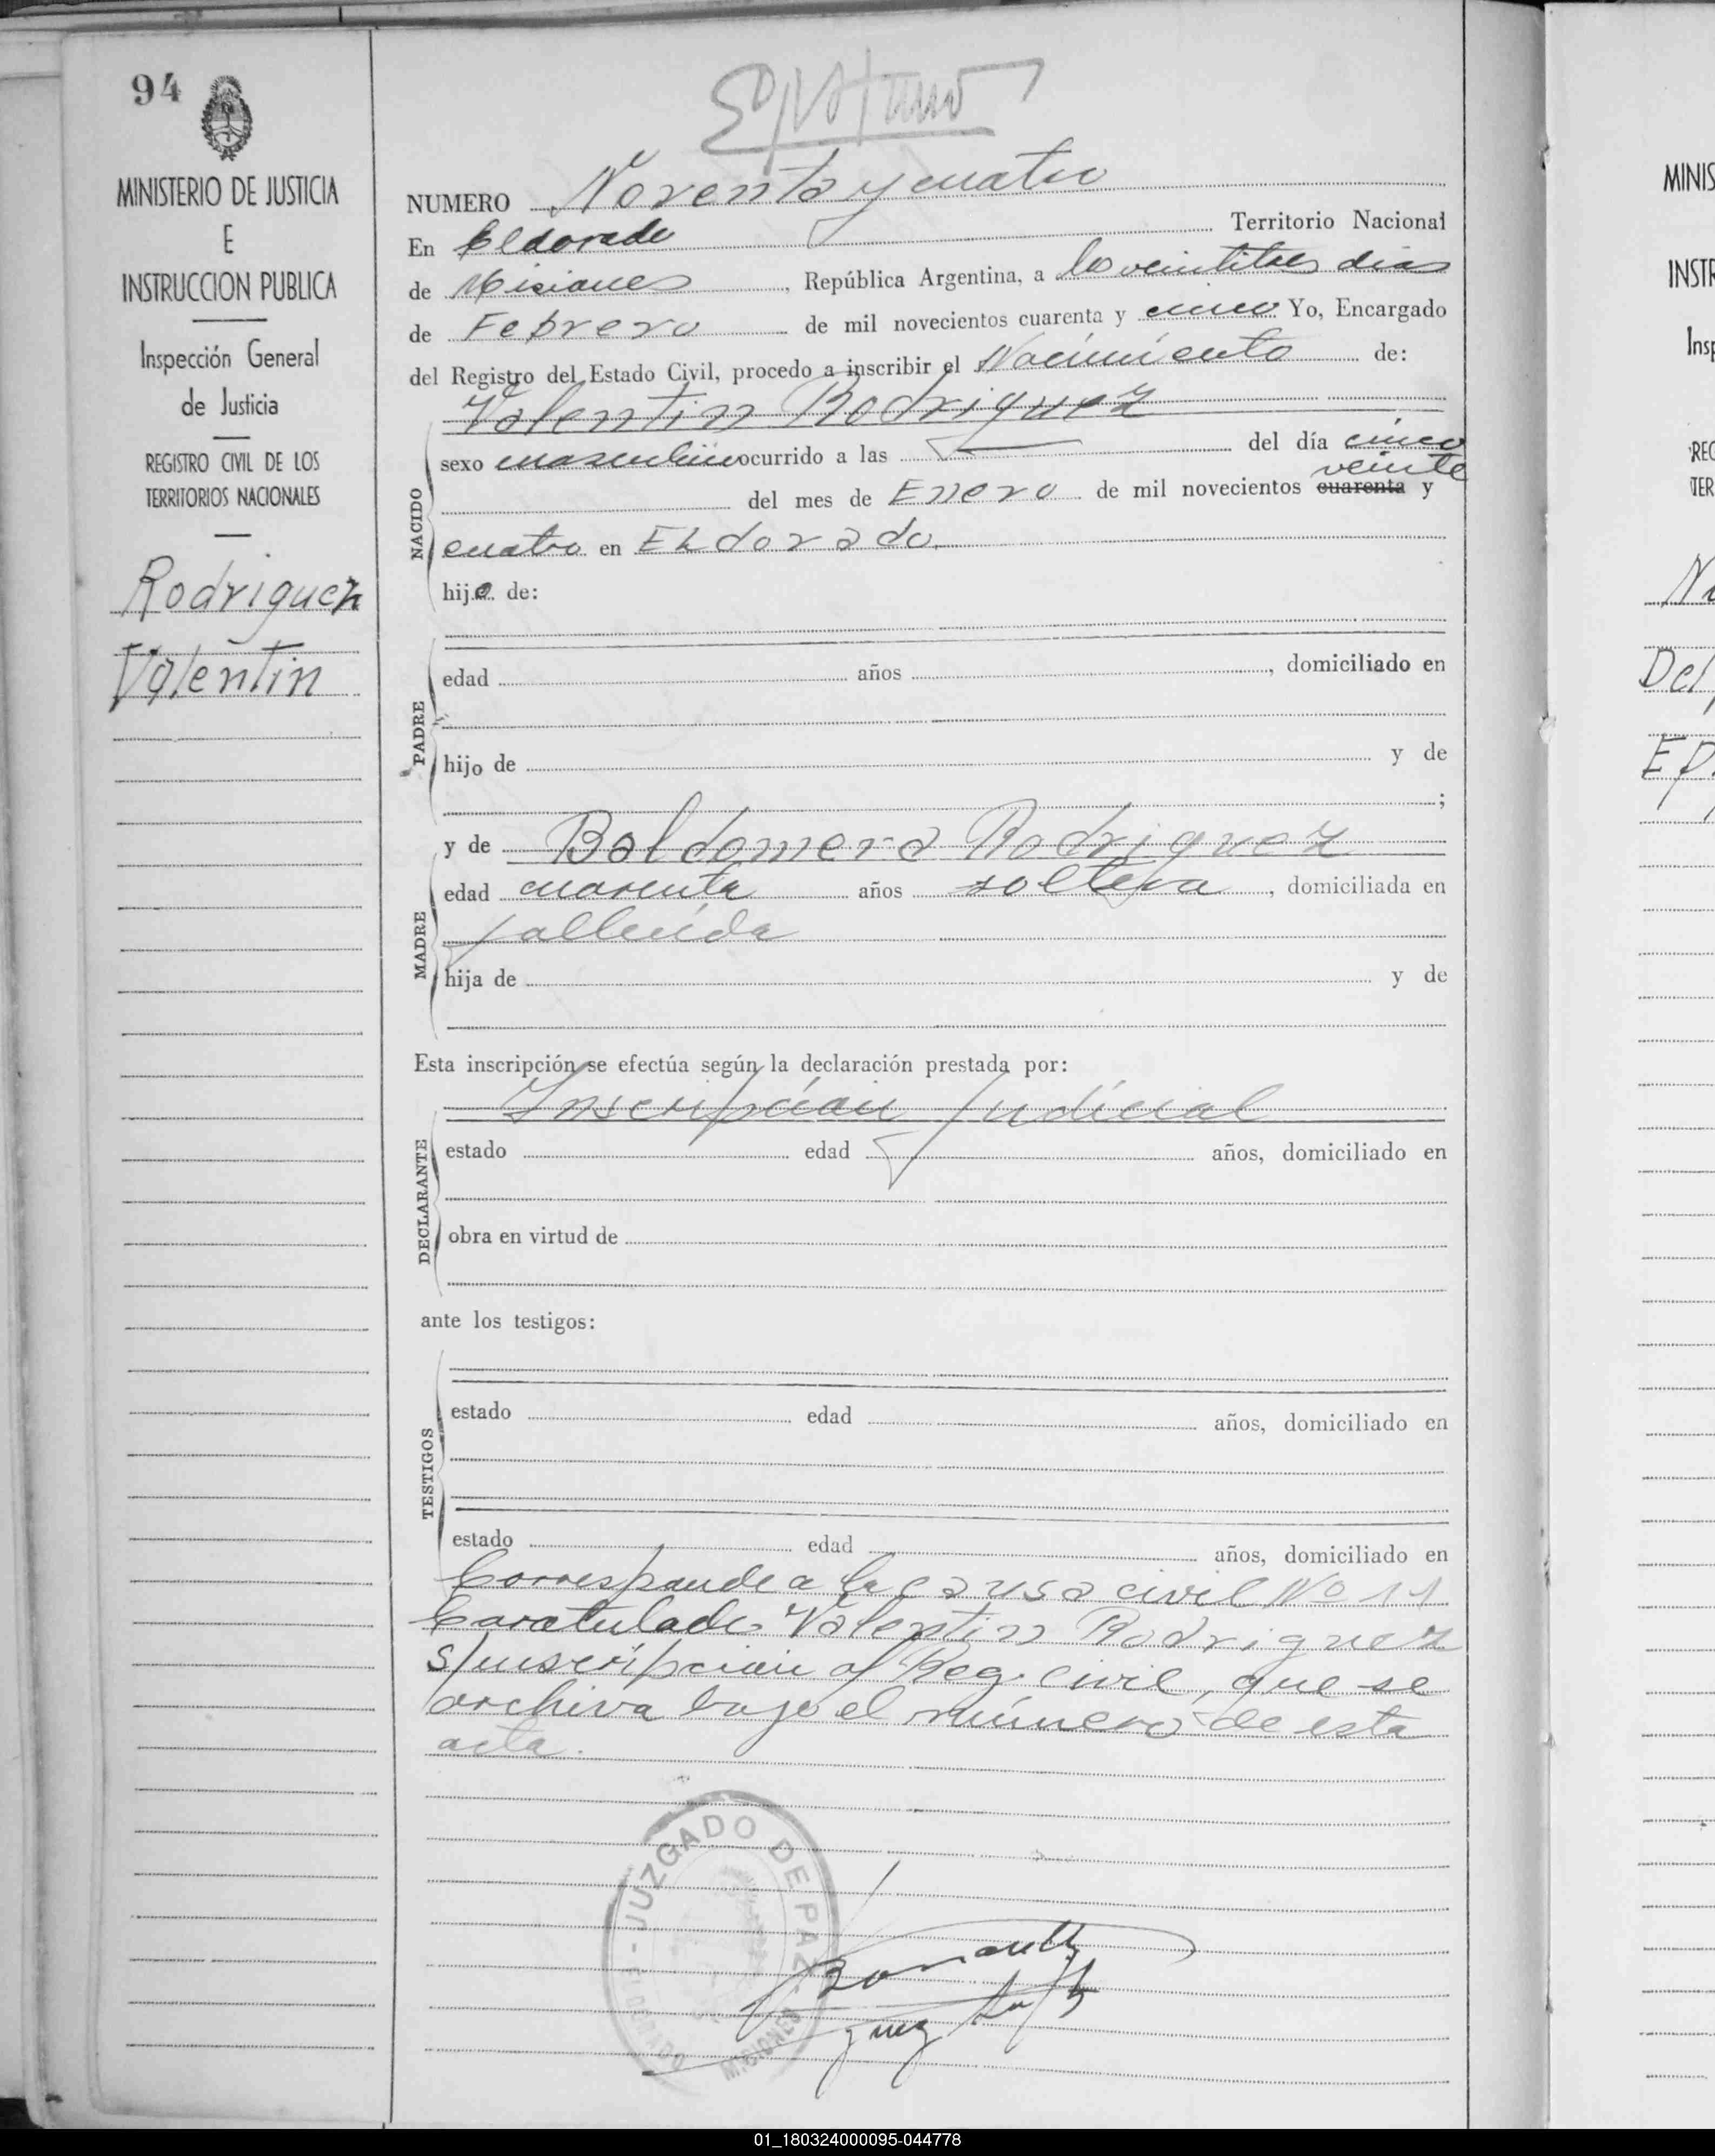 94
MINISTERIO DE JUSTICIA
E
INSTRUCCION PUBLICA
Inspección General
de Justicia
REGISTRO CIVIL DE LOS
TERRITORIOS NACIONALES
Rodriguez
Valentin
NUMERO Noventa y cuatro
En Eldorado Territorio Nacional
de Misiones, República Argentina, a los veintitres dias
de Febrero de mil novecientos cuarenta y cinco Yo, Encargado
del Registro del Estado Civil, procedo a inscribir el Nacimiento de:
Valentin Rodriguez
NACIDO
sexo masculino ocurrido a las del día cinco
veinte
del mes de Enero de mil novecientos cuarenta y
cuatro en Eldorado.
hijo de:
PADRE
edad años , domiciliado en
hijo de y de
;
y de Baldomera Rodriguez
MADRE
edad cuarenta años soltera, domiciliada en
fallecida
hija de y de
Esta inscripción se efectúa según la declaración prestada por:
Inscripcion Judicial
DECLARANTE
estado edad años, domiciliado en
obra en virtud de
ante los testigos:
TESTIGOS
estado edad años, domiciliado en
estado edad años, domiciliado en
Corresponde a la causa civil No 11
Caratulado Valentin Rodriguez
s/inscripcion al Reg. civil, que se
archiva bajo el número de esta
acta.
JUZGADO DE PAZ
ELDORADO MISIONES
Juez
MINIS
INSTR
Insp
REG
TER